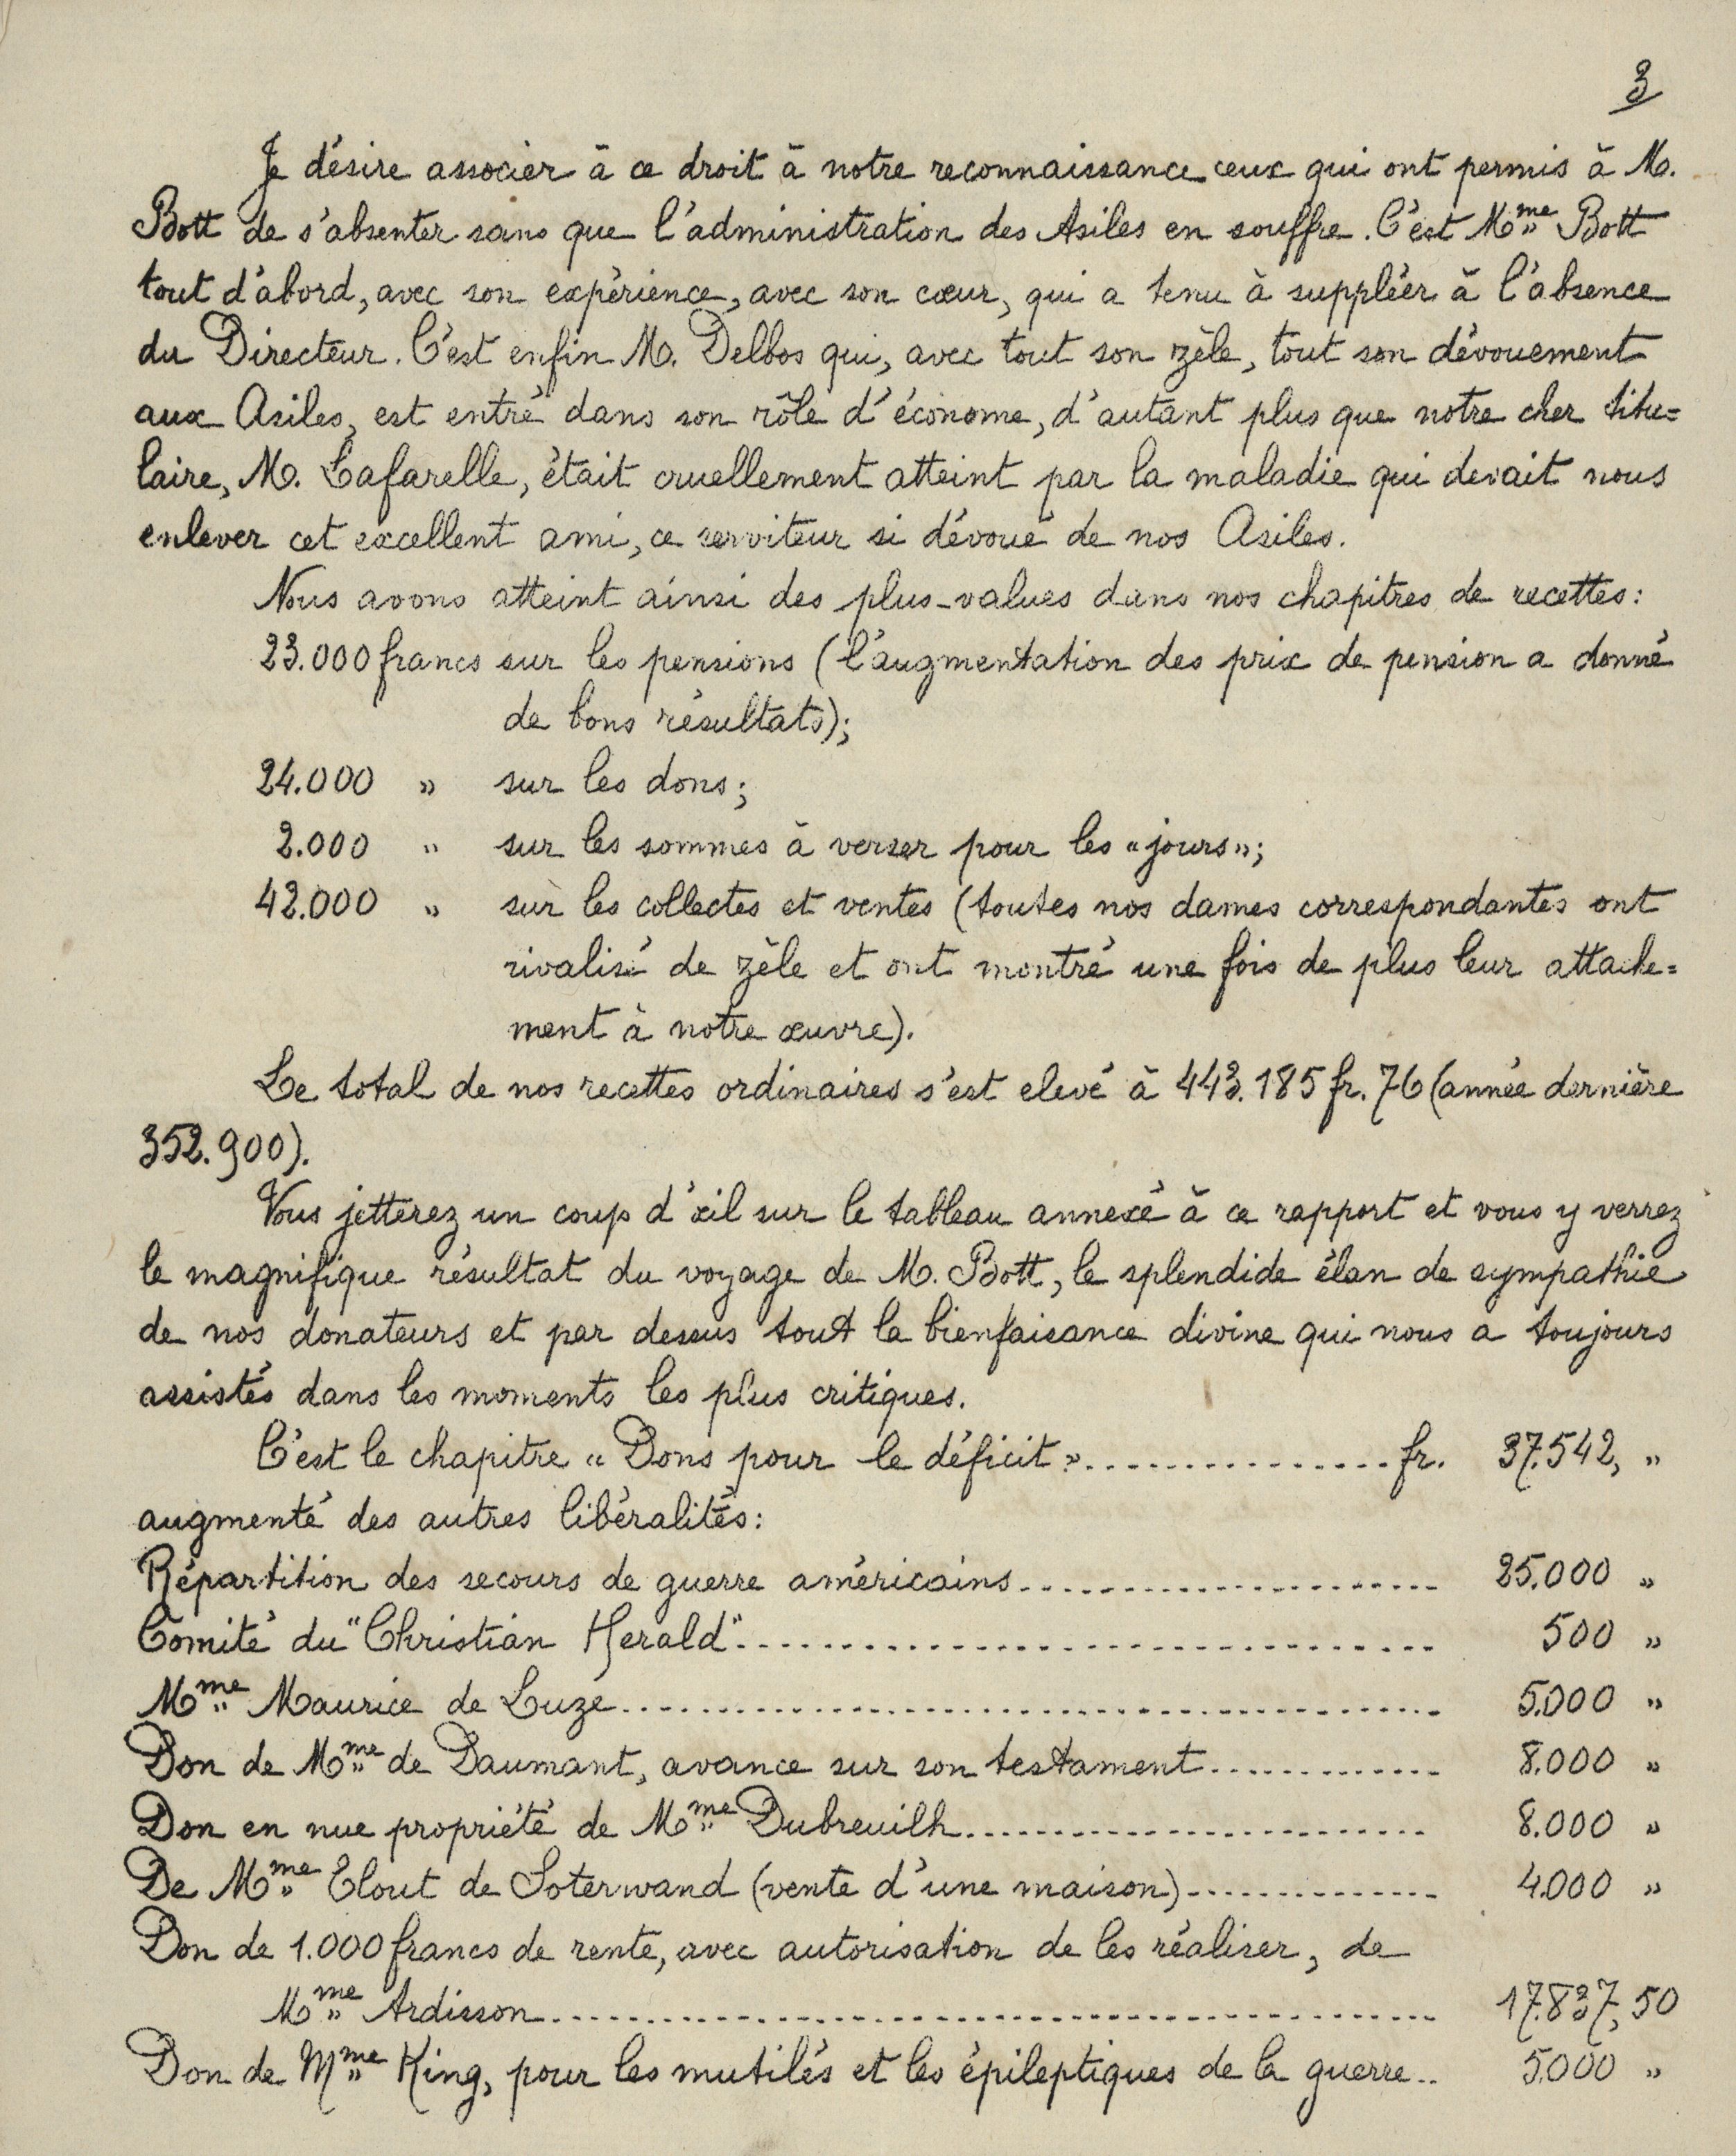 3
Je désire associer à ce droit à notre reconnaissance ceux qui ont permis à M.
Bott de s'absenter sans que l'administration des Asiles en souffre. C'est Mme Bott
tout d'abord, avec son expérience, avec son cœur, qui a tenu à suppléer à l'absence
du Directeur. C'est enfin M. Delbos qui, avec tout son zèle, tout son dévouement
aux Asiles, est entré dans son rôle d'économe, d'autant plus que notre cher titu=
laire, M. Lafarelle, était cruellement atteint par la maladie qui devait nous
enlever cet excellent ami, ce serviteur si dévoué de nos Asiles.
Nous avons atteint ainsi des plus-values dans nos chapitres de recettes:
23.000 francs sur les pensions (l'augmentation des prix de pension a donné
de bons résultats);
24.000 » sur les dons;
2.000 » sur les sommes à verser pour les «jours»;
42.000 » sur les collectes et ventes (toutes nos dames correspondantes ont
rivalisé de zèle et ont montré une fois de plus leur attache=
ment à notre œuvre).
Le total de nos recettes ordinaires s'est elevé à 443.185 fr. 76 (année dernière
352.900).
Vous jetterez un coup d'œil sur le tableau annexé à ce rapport et vous y verrez
le magnifique résultat du voyage de M. Bott, le splendide élan de sympathie
de nos donateurs et par dessus tout la bienfaisance divine qui nous a toujours
assistés dans les moments les plus critiques.
C'est le chapitre «Dons pour le déficit»................fr. 37.542, »
augmenté des autres libéralités:
Répartition des secours de guerre américains...................... 25.000 »
Comité du "Christian Herald"................................... 500 »
Mme Maurice de Luze......................................... 5.000 »
Don de Mme de Daumant, avance sur son testament............. 8.000 »
Don en nue propriété de Mme Dubreuilh........................ 8.000 »
De Mme Clout de Soterwand (vente d'une maison).............. 4.000 »
Don de 1.000 francs de rente, avec autorisation de les réaliser, de
Mme Ardisson............................................. 17.837,50
Don de Mme King, pour les mutilés et les épileptiques de la guerre.. 5.000 »